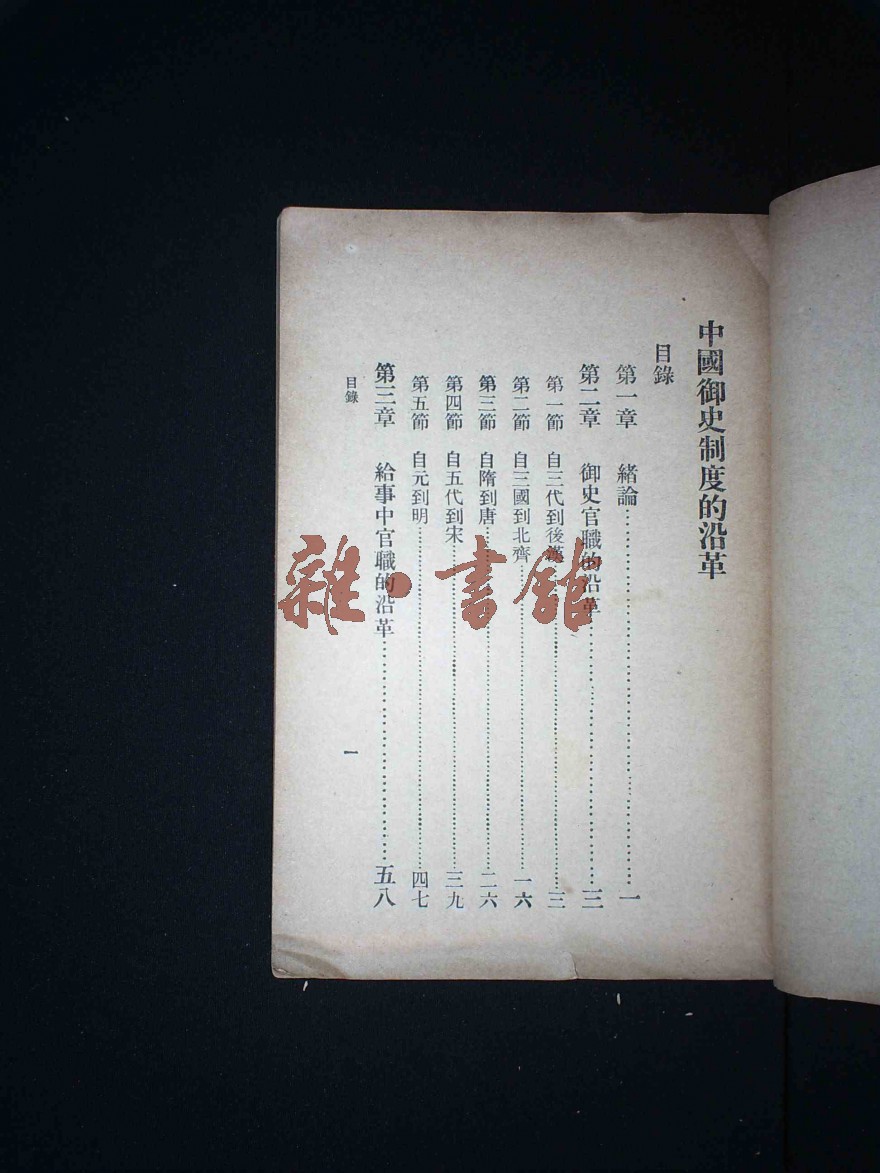 中國御史制度的沿革
目錄
第一章　緒論……………………一
第二章　御史官職的沿革……………………三
第一節　自三代到後漢……………………三
第二節　自三國到北齊……………………一六
第三節　自隋到唐……………………二六
第四節　自五代到宋……………………三九
第五節　自元到明……………………四七
第三章　給事中官職的沿革……………………五八
目錄
一
雜·書館